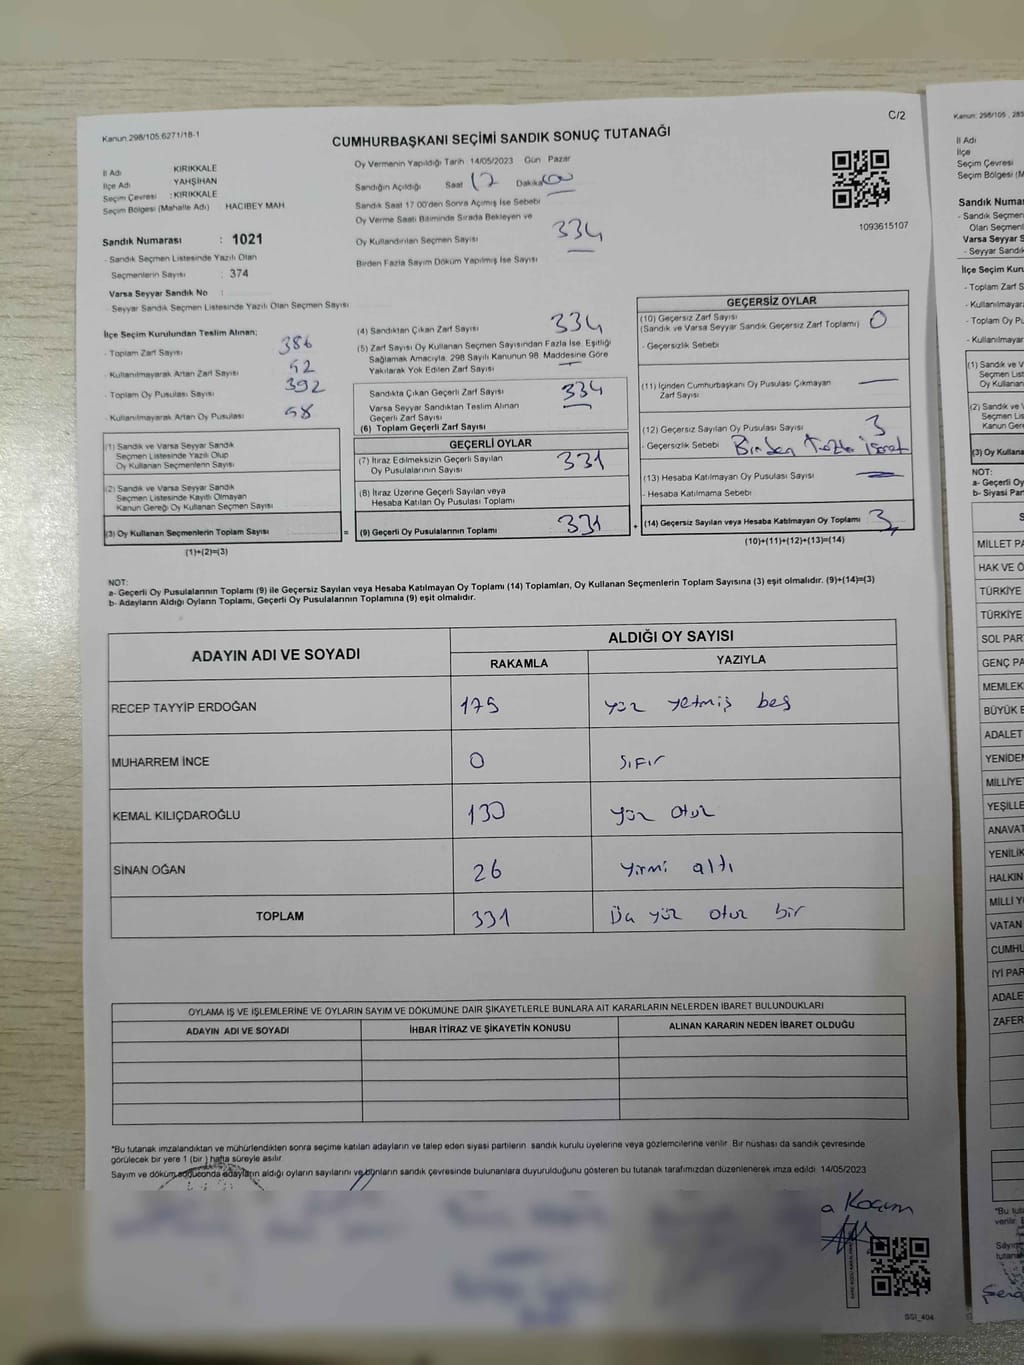 C/2
Kanun 298/105,6271/18-1
CUMHURBAŞKANI SEÇİMİ SANDIK SONUÇ TUTANAĞI
İl Adı KIRIKKALE
İlçe Adı YAHŞİHAN
Seçim Çevresi : KIRIKKALE
Seçim Bölgesi (Mahalle Adı) HACIBEY MAH.
Sandık Numarası : 1021
- Sandık Seçmen Listesinde Yazılı Olan
Seçmenlerin Sayısı : 374
Varsa Seyyar Sandık No :
- Seyyar Sandık Seçmen Listesinde Yazılı Olan Seçmen Sayısı
Oy Vermenin Yapıldığı Tarih 14/05/2023 Gün Pazar
Sandığın Açıldığı Saat 17 Dakika 00
Sandık Saat 17 00'den Sonra Açılmış İse Sebebi
Oy Verme Saati Bitiminde Sırada Bekleyen ve
Oy Kullandırılan Seçmen Sayısı 334
Birden Fazla Sayım Döküm Yapılmış İse Sayısı
1093615107
İlçe Seçim Kurulundan Teslim Alınan;
- Toplam Zarf Sayısı 386
- Kullanılmayarak Artan Zarf Sayısı 52
- Toplam Oy Pusulası Sayısı 392
- Kullanılmayarak Artan Oy Pusulası 58
(1) Sandık ve Varsa Seyyar Sandık
Seçmen Listesinde Yazılı Olup
Oy Kullanan Seçmenlerin Sayısı
(2) Sandık ve Varsa Seyyar Sandık
Seçmen Listesinde Kayıtlı Olmayan
Kanun Gereği Oy Kullanan Seçmen Sayısı
(3) Oy Kullanan Seçmenlerin Toplam Sayısı =
(1)+(2)=(3)
(4) Sandıktan Çıkan Zarf Sayısı 334
(5) Zarf Sayısı Oy Kullanan Seçmen Sayısından Fazla İse, Eşitliği
Sağlamak Amacıyla, 298 Sayılı Kanunun 98. Maddesine Göre
Yakılarak Yok Edilen Zarf Sayısı
Sandıkta Çıkan Geçerli Zarf Sayısı 334
Varsa Seyyar Sandıktan Teslim Alınan
Geçerli Zarf Sayısı
(6) Toplam Geçerli Zarf Sayısı
GEÇERLİ OYLAR
(7) İtiraz Edilmeksizin Geçerli Sayılan
Oy Pusulalarının Sayısı 331
(8) İtiraz Üzerine Geçerli Sayılan veya
Hesaba Katılan Oy Pusulası Toplamı
(9) Geçerli Oy Pusulalarının Toplamı 331 +
GEÇERSİZ OYLAR
(10) Geçersiz Zarf Sayısı 0
(Sandık ve Varsa Seyyar Sandık Geçersiz Zarf Toplamı)
- Geçersizlik Sebebi
(11) İçinden Cumhurbaşkanı Oy Pusulası Çıkmayan
Zarf Sayısı
(12) Geçersiz Sayılan Oy Pusulası Sayısı 3
- Geçersizlik Sebebi Birden Fazla İşaret
(13) Hesaba Katılmayan Oy Pusulası Sayısı
- Hesaba Katılmama Sebebi
(14) Geçersiz Sayılan veya Hesaba Katılmayan Oy Toplamı 3
(10)+(11)+(12)+(13)=(14)
NOT:
a- Geçerli Oy Pusulalarının Toplamı (9) ile Geçersiz Sayılan veya Hesaba Katılmayan Oy Toplamı (14) Toplamları, Oy Kullanan Seçmenlerin Toplam Sayısına (3) eşit olmalıdır. (9)+(14)=(3)
b- Adayların Aldığı Oyların Toplamı, Geçerli Oy Pusulalarının Toplamına (9) eşit olmalıdır.
ADAYIN ADI VE SOYADI
ALDIĞI OY SAYISI
RAKAMLA YAZIYLA
RECEP TAYYİP ERDOĞAN 175 yüz yetmiş beş
MUHARREM İNCE 0 sıfır
KEMAL KILIÇDAROĞLU 130 yüz otuz
SİNAN OĞAN 26 yirmi altı
TOPLAM 331 yüz otuz bir
OYLAMA İŞ VE İŞLEMLERİNE VE OYLARIN SAYIM VE DÖKÜMÜNE DAİR ŞİKAYETLERLE BUNLARA AİT KARARLARIN NELERDEN İBARET BULUNDUKLARI
ADAYIN ADI VE SOYADI İHBAR İTİRAZ VE ŞİKAYETİN KONUSU ALINAN KARARIN NEDEN İBARET OLDUĞU
*Bu tutanak imzalandıktan ve mühürlendikten sonra seçime katılan adayların ve talep eden siyasi partilerin sandık kurulu üyelerine veya gözlemcilerine verilir. Bir nüshası da sandık çevresinde
görülecek bir yere 1 (bir ) hafta süreyle asılır.
Sayım ve döküm sonucunda adayların aldığı oyların sayılarını ve bunların sandık çevresinde bulunanlara duyurulduğunu gösteren bu tutanak tarafımızdan düzenlenerek imza edildi. 14/05/2023
SSI_404
İl Adı
İlçe
Seçim Çevresi
Seçim Bölgesi (M
Sandık Numar
- Sandık Seçmen
Olan Seçmen
Varsa Seyyar S
- Seyyar Sandık
İlçe Seçim Kuru
- Toplam Zarf S
- Kullanılmayara
- Toplam Oy Pu
- Kullanılmayara
(1) Sandık ve V
Seçmen Lis
Oy Kullanan
(2) Sandık ve
Seçmen Lis
Kanun Gere
(3) Oy Kullana
NOT:
a- Geçerli Oy
b- Siyasi Part
MİLLET PA
HAK VE Ö
TÜRKİYE
TÜRKİYE
SOL PAR
GENÇ PA
MEMLEK
BÜYÜK B
ADALET
YENİDEN
MİLLİYET
YEŞİLLE
ANAVAT
YENİLİK
HALKIN
MİLLİ Y
VATAN
CUMHU
İYİ PAR
ADALE
ZAFER